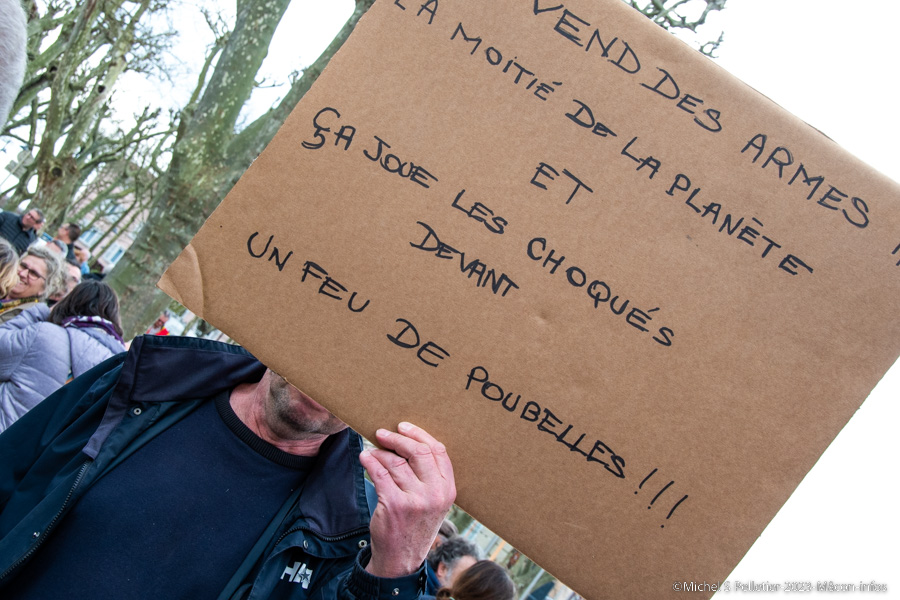 VEND DES ARMES
LA MOITIÉ DE LA PLANÈTE
ET
ÇA JOUE LES CHOQUÉS
DEVANT
UN FEU DE POUBELLES !!!
HH
©Michel S Pelletier 2023 Mâcon-infos